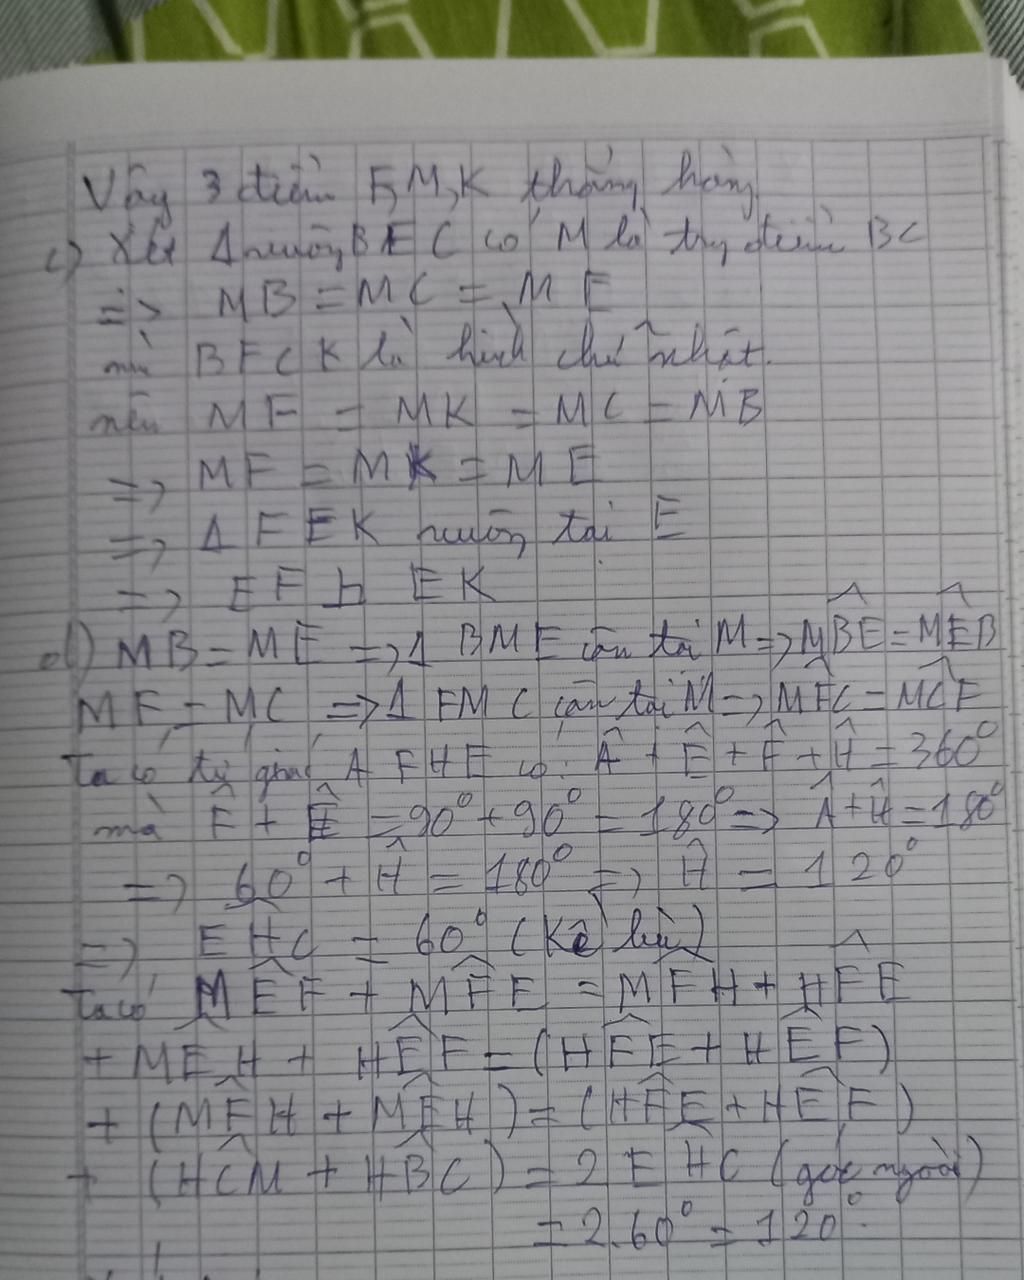 Vậy 3 điểm F, M, K thẳng hàng
c) Xét Δ vuông BEC có M là trg điểm BC
=> MB = MC = ME
mà BFCK là hình chữ nhật.
nên MF = MK = MC = MB
=> MF = MK = ME
=> Δ FEK vuông tại E
=> EF ⊥ EK
d) MB = ME => Δ BME cân tại M => \widehat{MBE} = \widehat{MEB}
MF = MC => Δ FMC cân tại M => \widehat{MFC} = \widehat{MCF}
Ta có tứ giác AFHE có: Â + Ê + F̂ + Ĥ = 360°
mà F̂ + Ê = 90° + 90° = 180° => Â + Ĥ = 180°
=> 60° + Ĥ = 180° => Ĥ = 120°
=> EHC = 60° (Kề bù)
Ta có MÊF + MF̂E = MF̂H + HF̂E
+ MÊH + HÊF = (HF̂E + HÊF)
+ (MF̂H + MÊH) = (HF̂E + HÊF)
+ (HĈM + HB̂C) = 2 EHC (góc ngoài)
= 2.60° = 120°.